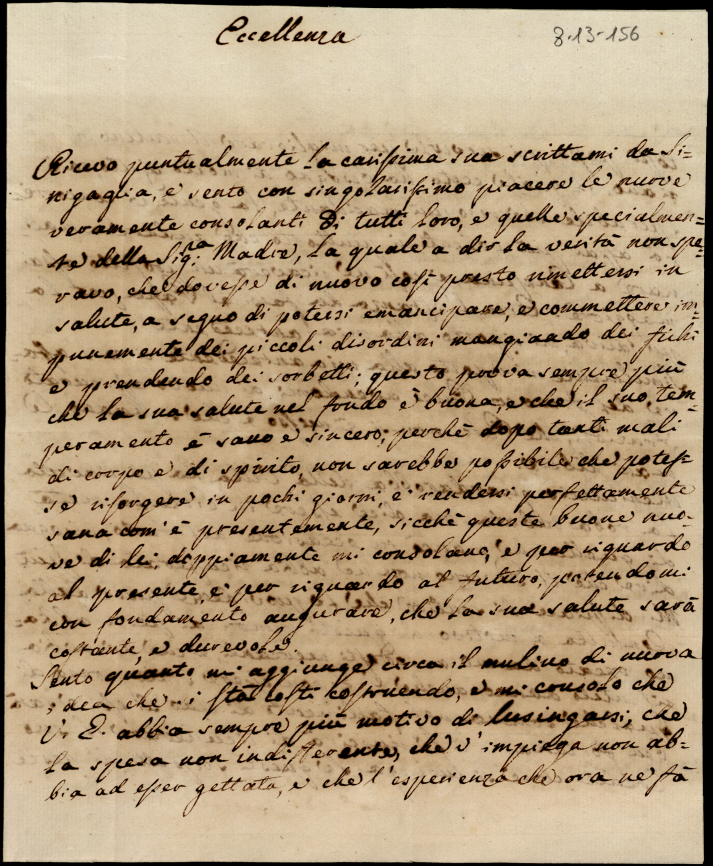 Eccellenza
8-13-156
Ricevo puntualmente la carissima sua scrittami da Si=
nigaglia, e sento con singolarissimo piacere le nuove
veramente consolanti di tutti loro, e quelle specialmen=
te della Sig.ra Madre, la quale a dir la verità non spe=
ravo, che dovesse di nuovo così presto rimettersi in
salute, a segno di potersi emancipare, e commettere im=
punemente dei piccoli disordini mangiando dei fichi
e prendendo dei sorbetti; questo prova sempre più
che la sua salute nel fondo è buona, e che il suo tem=
peramento è sano e sincero; perchè dopo tanti mali
di corpo e di spirito, non sarebbe possibile che potes=
se risorgere in pochi giorni, e rendersi perfettamente
sana com'è presentemente, sicchè queste buone nuo=
ve di lei, doppiamente mi consolano, e per riguardo
al presente, e per riguardo al futuro, potendomi
con fondamento augurare, che la sua salute sarà
costante, e durevole.
Sento quanto mi aggiunge circa il mulino di nuova
idea che si stà costì costruendo, e mi consolo che
V. E. abbia sempre più motivo di lusingarsi, che
la spesa non indifferente, che v'impiega non ab=
bia ad esser gettata, e che l'esperienza che ora ne fà